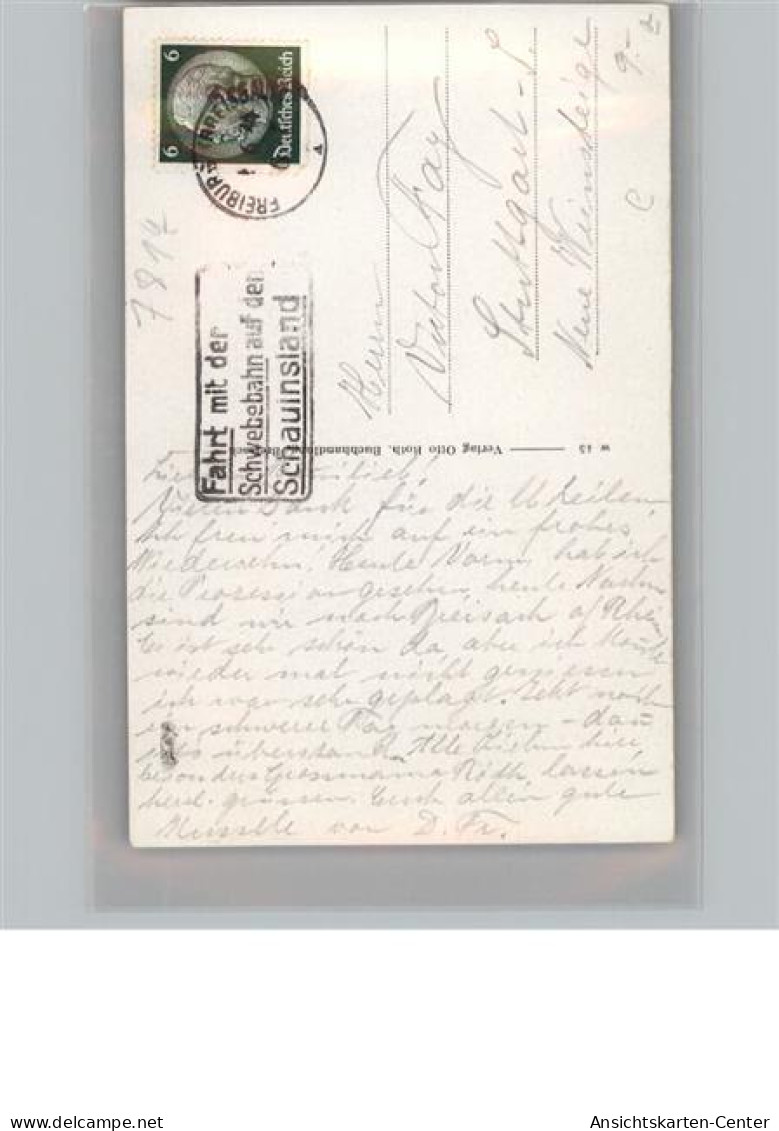 6 6
Deutsches Reich
FREIBURG BREISGAU
7814
Fahrt mit der
Schwebebahn auf den
Schauinsland
Herrn
Viktor Fay
Stuttgart-S.
Neue Weinsteige
9.-
C
w 45 Verlag Otto Roth, Buchhandlung
Vielen Dank für die Zeilen.
Ich freu mich auf ein frohes
Wiedersehn! Heute Vorm. hab ich
die Prozession gesehen, heute Nachm
sind wir nach Breisach a/Rhein
Es ist sehr schön da, aber ich konnte
wieder mal nicht geniessen
ich war sehr geplagt. Jetzt noch
ein schwerer Tag morgen - dann
überstand. Alle Lieben hier,
besonders Grossmama Roth lassen
herzl. grüssen. Euch allein gute
von D. Fr.
Ansichtskarten-Center